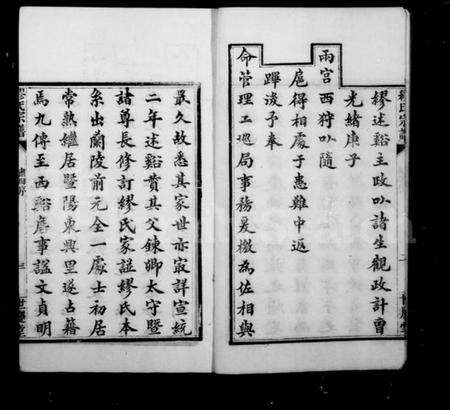 繆氏宗譜
繆述谿主政以諸生觀政計曹
光緒庚子
兩宮西狩以隨
扈得相處于患難中返
蹕後予奉
命管理工巡局事務爰檄為佐相與
最久故悉其家世亦最詳宣統
二年述谿賫其父錬卿太守暨
諸尊長修訂繆氏家諡繆氏本
系出蘭陵前元全一處士初居
常熟繼居暨陽東興里遂占籍
焉九傳至西谿虛事諡文貞明
繆氏宗譜
三